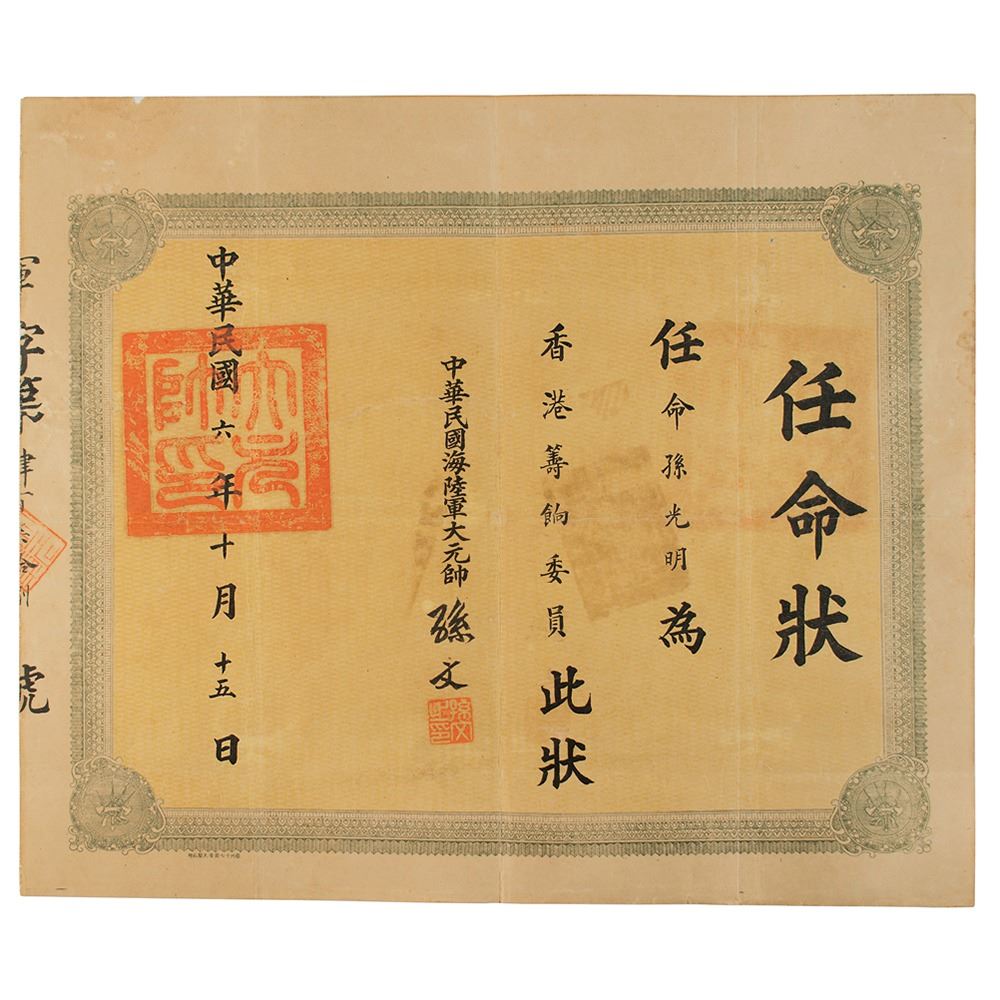 任命狀
任命孫光明為
香港籌餉委員此狀
中華民國海陸軍大元帥 孫文
孫文之印
中華民國六年十月十五日
大元帥印
軍字第肆百
號